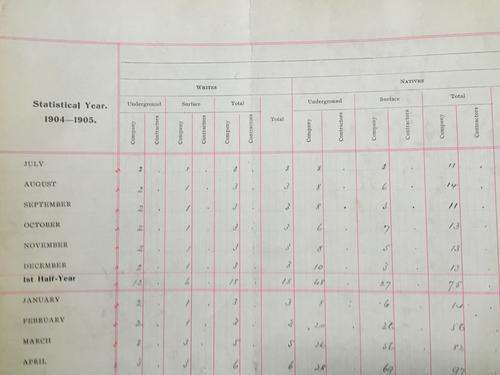 WHITES NATIVES
Statistical Year. Underground Surface Total Underground Surface Total
1904—1905. Company Contractors Company Contractors Company Contractors Total Company Contractors Company Contractors Company Contractors
JULY 2 1 3 8
AUGUST 2 1 3 3 8 6 14
SEPTEMBER 2 1 3 8 3 11
OCTOBER 2 1 3 3 6 7 13
NOVEMBER 2 1 3 3 8 5 13
DECEMBER 2 1 3 3 10 3 13
1st Half-Year 12 6 18 18 48 27 75
JANUARY 2 1 3 3 8 6 14
FEBRUARY 2 1 3
MARCH 3
APRIL 3 3 6 6 28 69 97